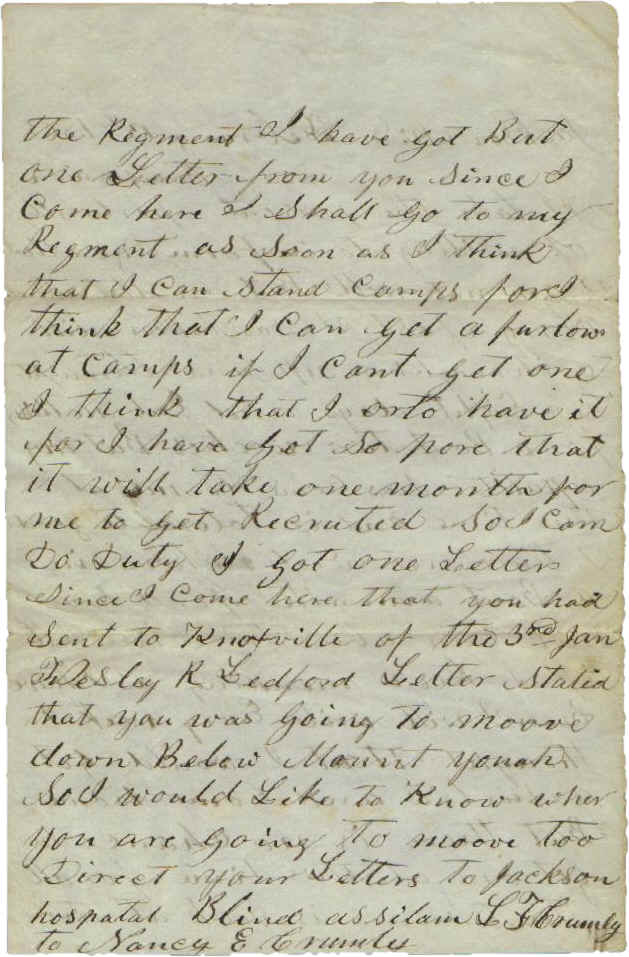 the Regment I have got But
one Letter from you since I
Come here I shall go to my
Regment as soon as I think
that I can stand camps for I
think that I can get a furlow
at camps if I cant get one
I think that I orto have it
for I have got so pore that
it will take one month for
me to get Recruted so I can
Do Duty I got one Letter
since I come here that you had
sent to Knoxville of the 3rd Jan
Wesley R Ledford Letter stated
that you was going to moove
down Below Mount yonah
So I would Like to Know wher
you are going to moove too
Direct your Letters to Jackson
hospatal Blind assilam L F Crumly
to Nancy E Crumly